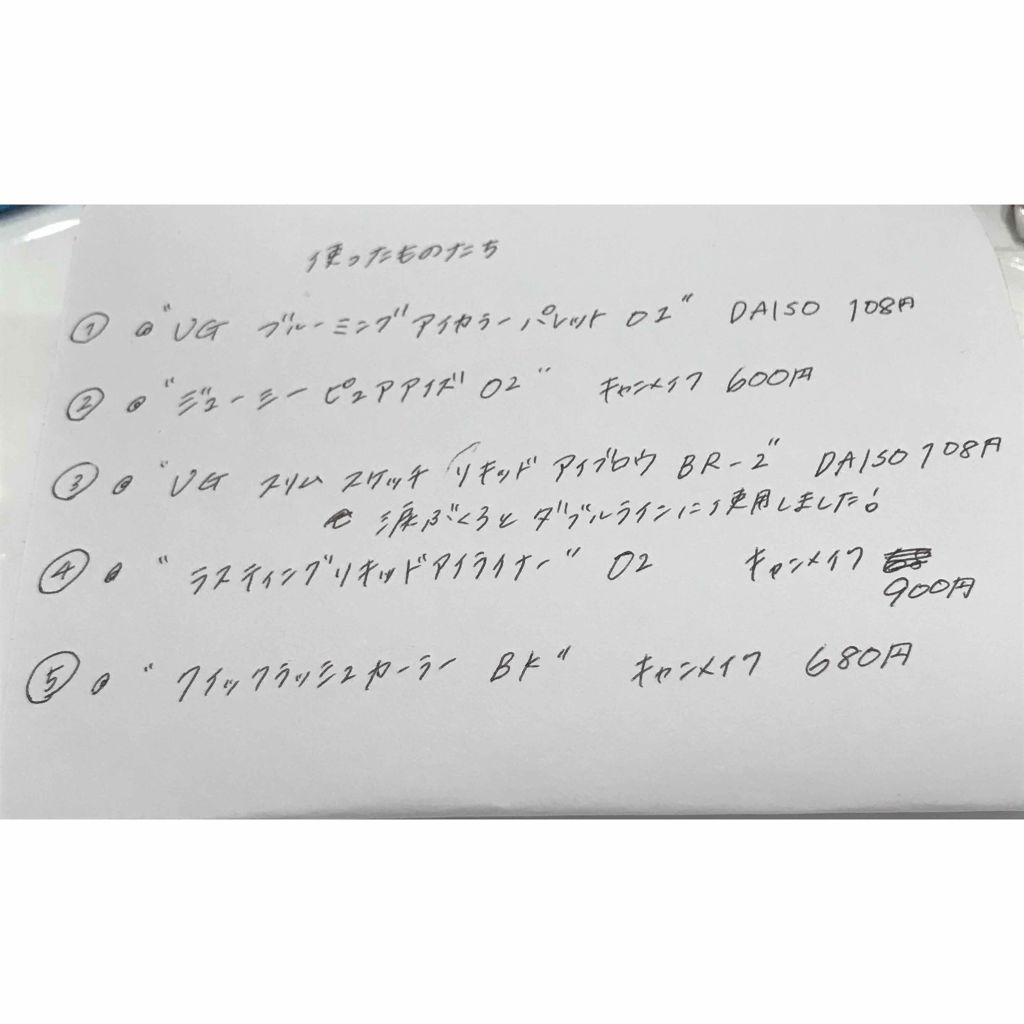 使ったものたち
① "UG ブルーミングアイカラーパレット 01" DAISO 108円
② "ジューシーピュアアイズ 02" キャンメイク 600円
③ "UG スリム スケッチ リキッド アイブロウ BR-2" DAISO 108円
涙ぶくろとダブルラインに使用しました!
④ "ラスティングリキッドアイライナー" 02 キャンメイク
900円
⑤ "クイックラッシュカーラー BK" キャンメイク 680円